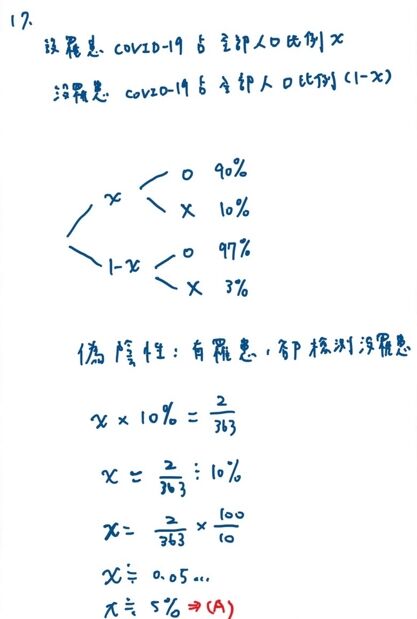 17.
設罹患 COVID-19 占全部人口比例 x
沒罹患 COVID-19 占全部人口比例 (1-x)
x O 90%
X 10%
1-x O 97%
X 3%
偽陰性：有罹患，卻檢測沒罹患
x × 10% = 2/363
x = 2/363 ÷ 10%
x = 2/363 × 100/10
x ≒ 0.05...
x ≒ 5% ⇒ (A)